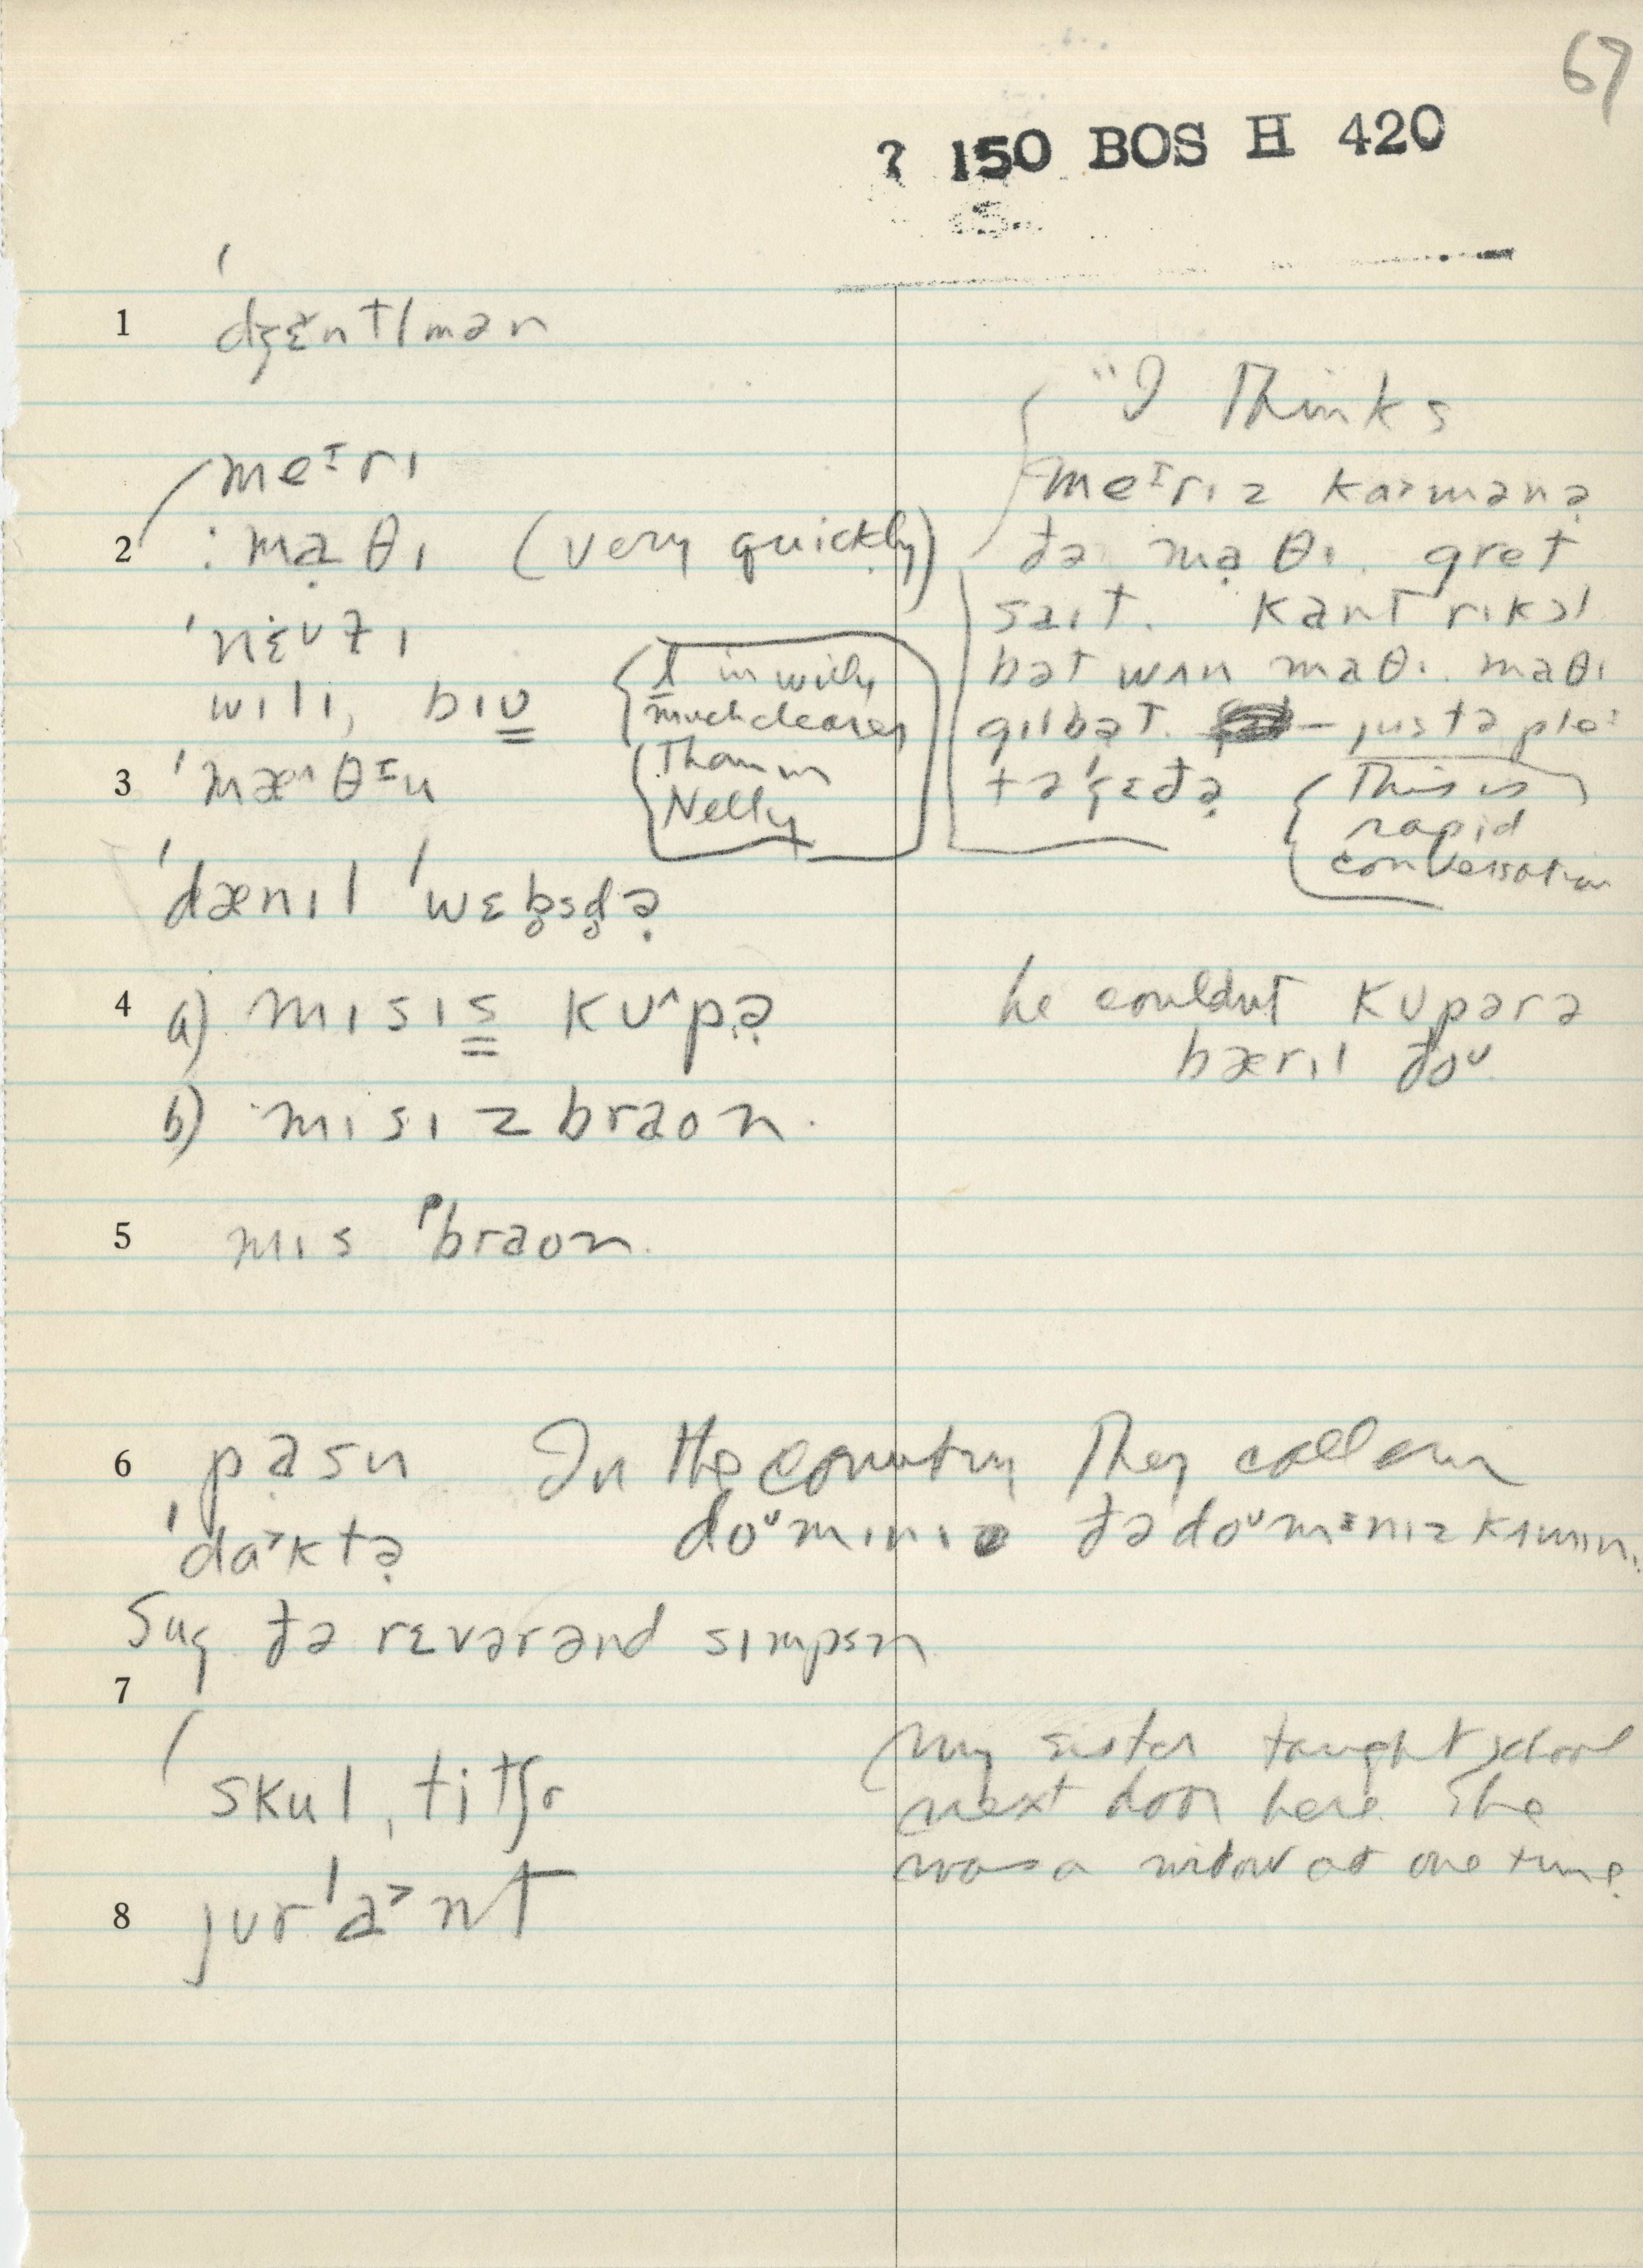 67
? 150 BOS H 420
1 ˈdʒɛ̆ntlmən
meɪrɪ
2 : mạθɪ (very quickly)
ˈnɛʊɫɪ
wɪlɪ, bɪʊ
3 ˈmæ^θɪu
{l in willy
much clearer
Than in
Nelly
ˈdænɪl ˈwɛb̥sd̥ə̣
4 a) mɪsɪs kʊ^pə̣
b) mɪsɪz braon.
5 mɪs braon.
6 pasn In the country They call em
ˈda˃ktə̣ doʊmɪnɪ đə doʊmɪnɪz kʌmɪn.
Sug đə rɛvərənd sɪmpsn
7
skul, titʃr
8 jʊrˈa˃nt
"I Thinks
meɪrɪz ka˃mənə̣
đə mạθɪ. gret
saɪt. kant rɪkɔl
bət wʌn maθɪ. maθɪ
gɪlbət. – just ə ple:
tə ˈgɛđə̣
{This is
rapid
conversation
he couldnt kʊpər ə
bærɪl đoʊ
My sister taught school
next door here. She
was a widow at one time.